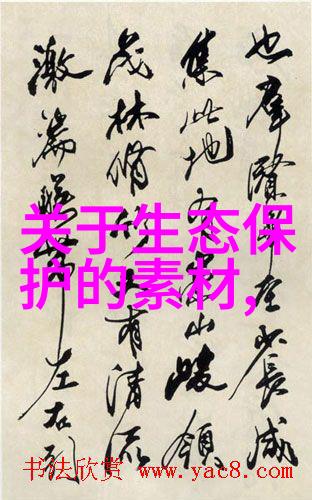 也羣賢畢至少長咸
集此地有崇山峻領
茂林脩竹又有清流
激湍暎帶左右引
关于生态保
护的素材,
书法欣赏 www.yac8.com